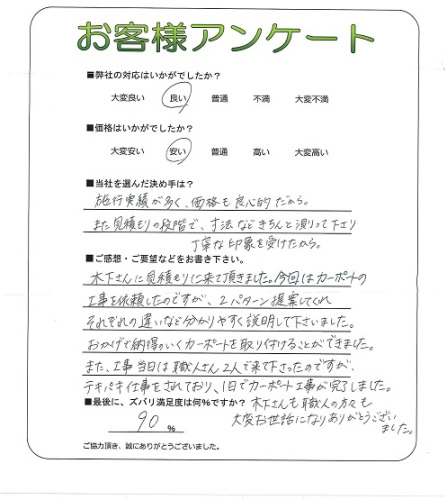 お客様アンケート
■弊社の対応はいかがでしたか?
大変良い 良い 普通 不満 大変不満
■価格はいかがでしたか?
大変安い 安い 普通 高い 大変高い
■当社を選んだ決め手は?
施行実績が多く、価格も良心的だから。
また見積もりの段階で、寸法などきちんと測って下さり
丁寧な印象を受けたから。
■ご感想・ご要望などをお書き下さい。
木下さんに見積もりに来て頂きました。今回はカーポートの
工事を依頼したのですが、2パターン提案してくれ
それぞれの違いなど分かりやすく説明して下さいました。
おかげで納得のいくカーポートを取り付けることができました。
また、工事当日は職人さん2人で来て下さったのですが、
テキパキ仕事をされており、1日でカーポート工事が完了しました。
■最後に、ズバリ満足度は何%ですか?
90 %
木下さんも職人の方々も
大変お世話になりありがとうござい
ました。
ご協力頂き、誠にありがとうございました。